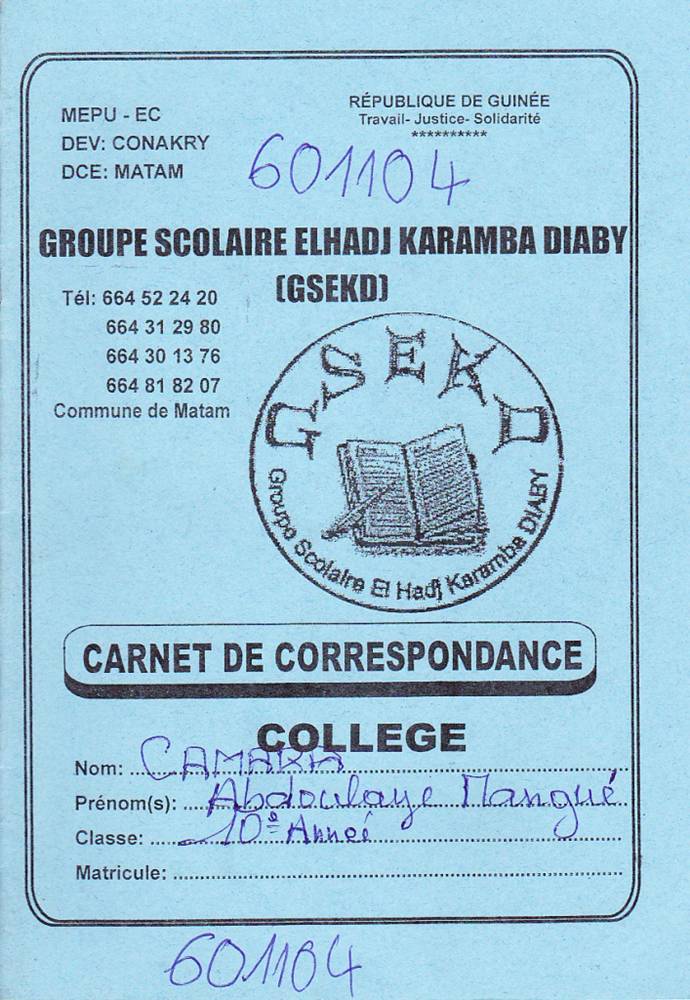 MEPU - EC
DEV: CONAKRY
DCE: MATAM
RÉPUBLIQUE DE GUINÉE
Travail- Justice- Solidarité
**********
601104
GROUPE SCOLAIRE ELHADJ KARAMBA DIABY
(GSEKD)
Tél: 664 52 24 20
664 31 29 80
664 30 13 76
664 81 82 07
Commune de Matam
GSEKD
Groupe Scolaire El Hadj Karamba DIABY
CARNET DE CORRESPONDANCE
COLLEGE
Nom: CAMARA
Prénom(s): Abdoulaye Mangué
Classe: 10e Année
Matricule:
601104